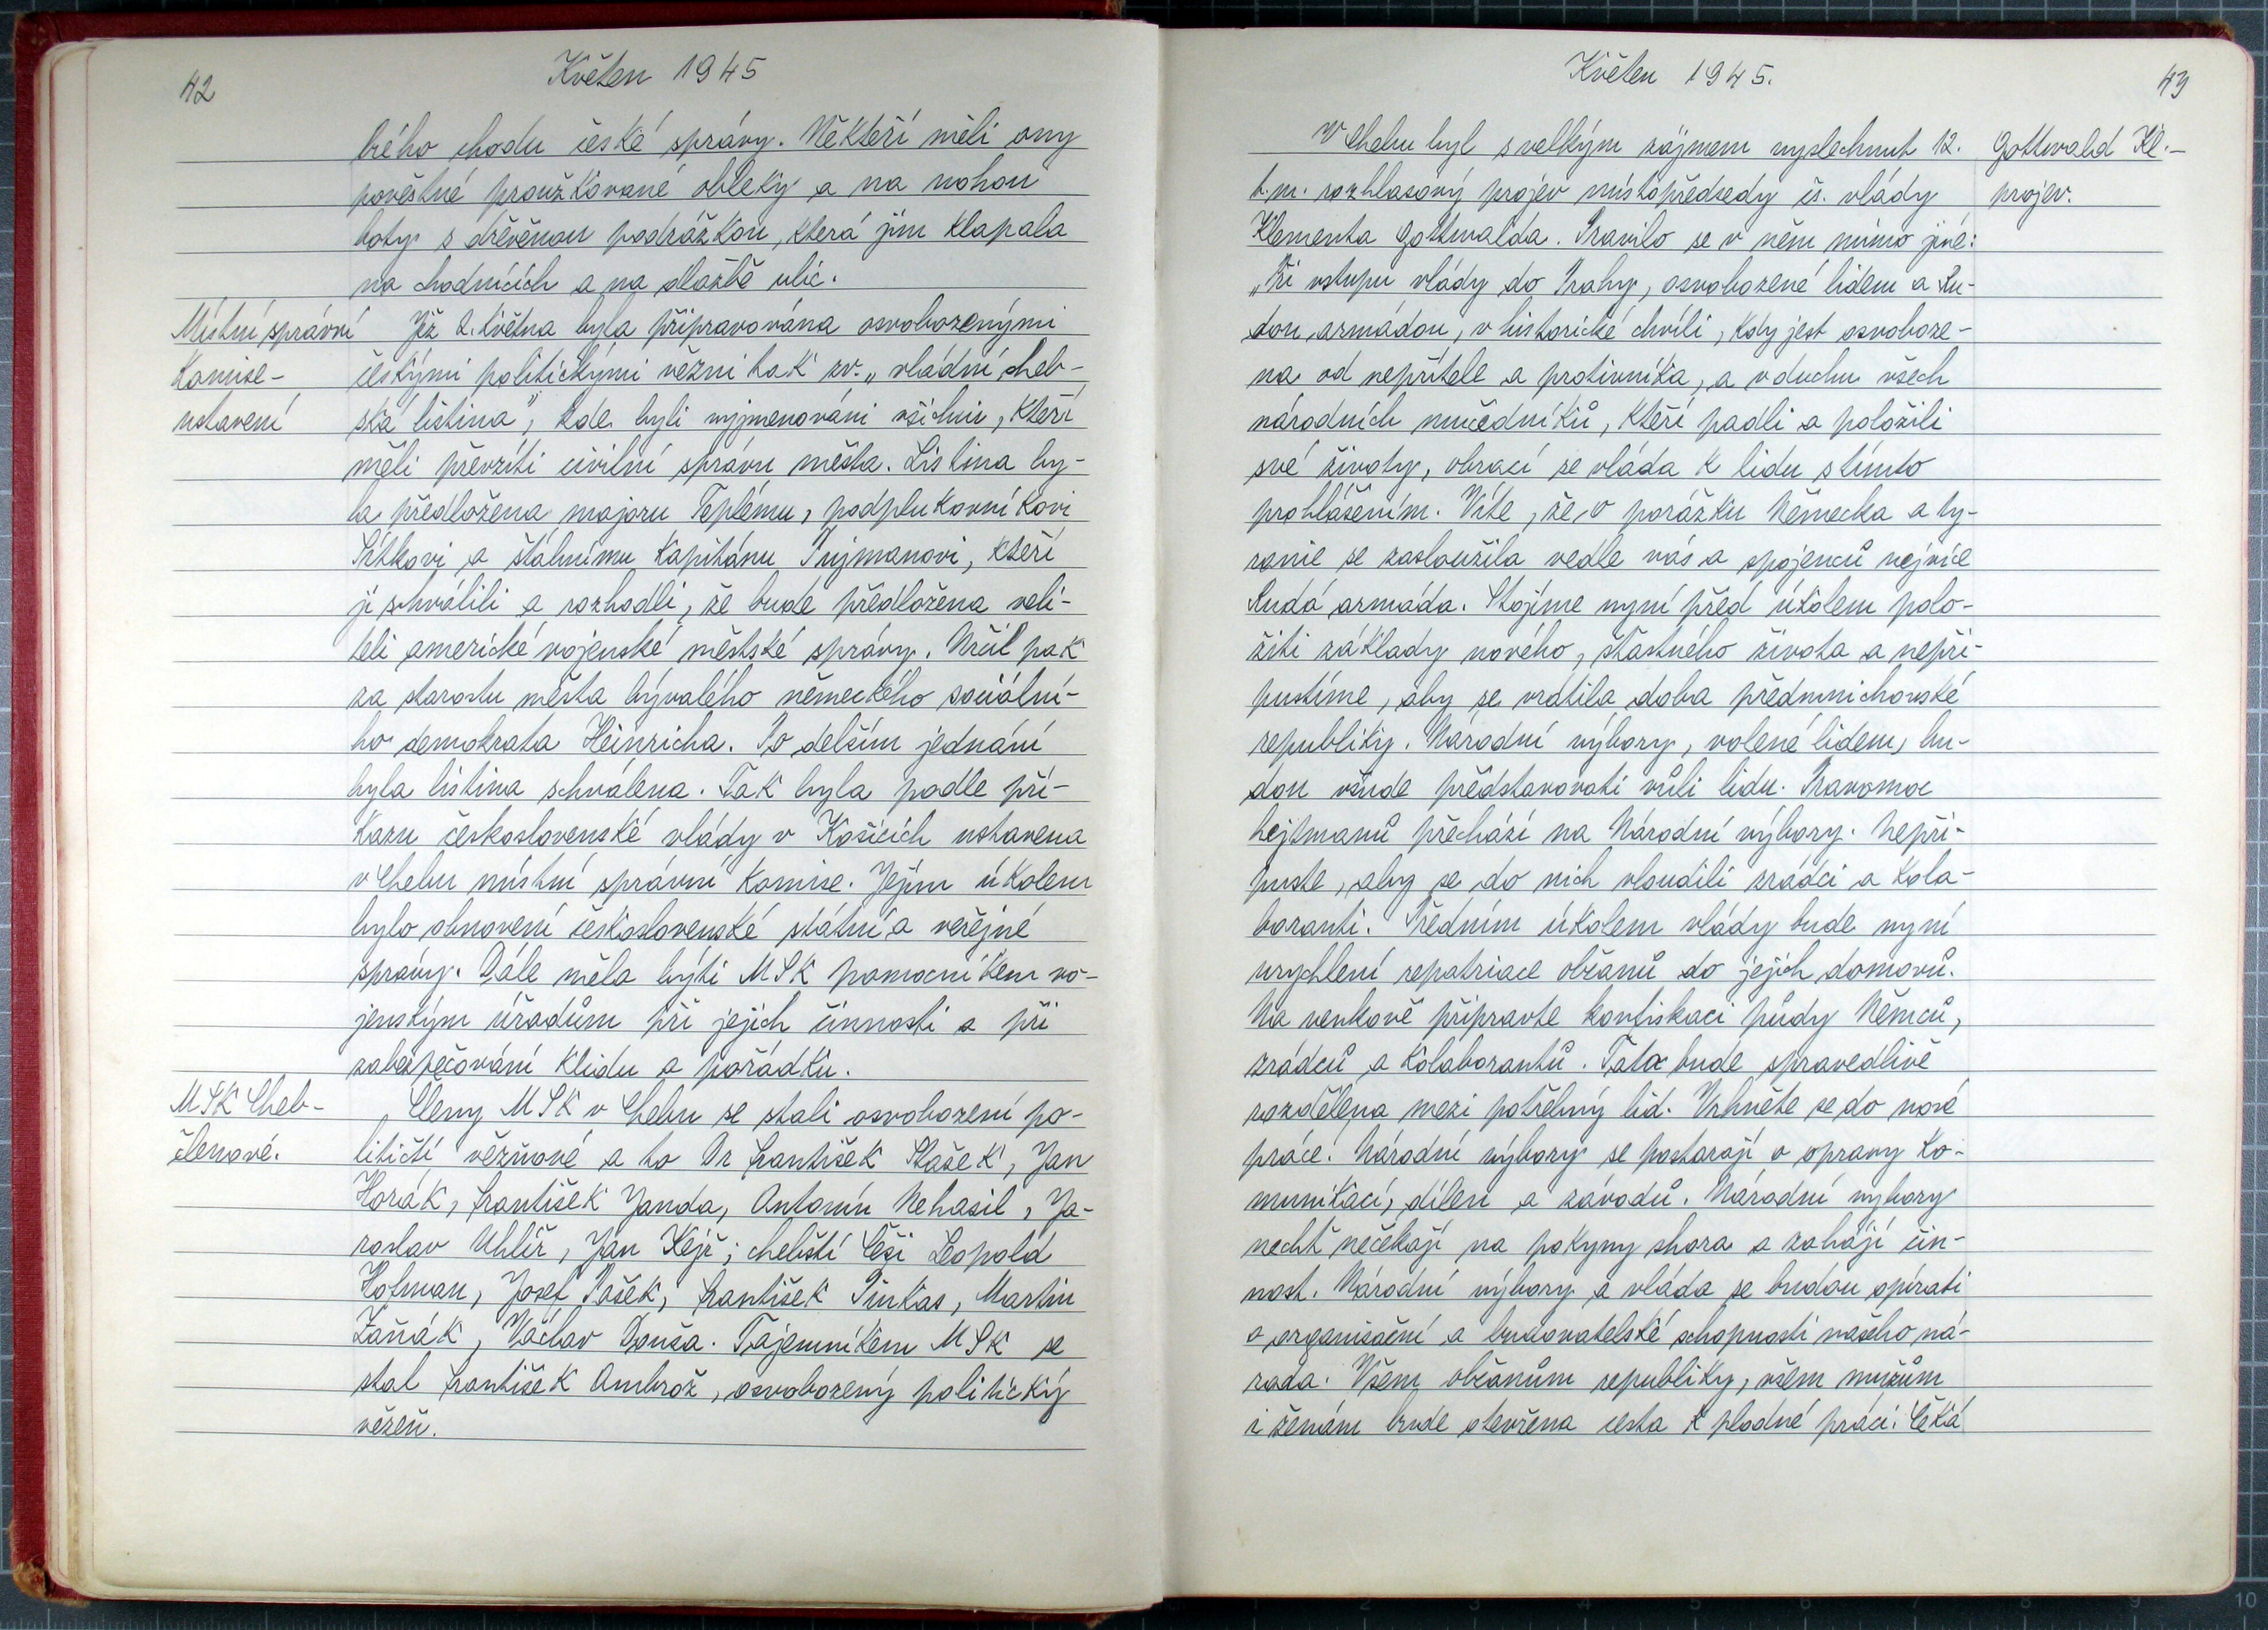 42
Květen 1945
brého chodu české správy. Někteří měli ony
pověstné proužkované obleky a na nohou
boty s dřevěnou podrážkou, která jim klapala
na chodnících a na dlažbě ulic.
Místní správní
komise-
ustavení
Již 2. května byla připravována osvobozenými
českými politickými vězni tak zv. „vládní cheb-
ská listina", kde byli vyjmenováni všichni, kteří
měli převzíti civilní správu města. Listina by-
la předložena majoru Teplému, podplukovníkovi
Sítkovi a štábnímu kapitánu Tujmanovi, kteří
ji schválili a rozhodli, že bude předložena veli-
teli americké vojenské městské správy. Určil pak
za starostu města bývalého německého sociální-
ho demokrata Heinricha. Po delším jednání
byla listina schválena. Tak byla podle pří-
kazu československé vlády v Košicích ustavena
v Chebu místní správní komise. Jejím úkolem
bylo obnovení československé státní a veřejné
správy. Dále měla býti MSK pomocníkem vo-
jenským úřadům při jejich činnosti a při
zabezpečování klidu a pořádku.
MSK Cheb-
členové.
Členy MSK v Chebu se stali osvobození po-
litičtí vězňové a to Dr František Stašek, Jan
Horák, František Janda, Antonín Nehasil, Ja-
roslav Uhlíř, Jan Kejř; chebští Češi Leopold
Hofman, Josef Pašek, František Pinkas, Martin
Žaňák, Václav Douša. Tajemníkem MSK se
stal František Ambrož, osvobozený politický
vězeň.
Květen 1945.
43
Gottwald Kl.-
projev.
V Chebu byl s velkým zájmem vyslechnut 12.
t.m. rozhlasový projev místopředsedy čs. vlády
Klementa Gottwalda. Pravilo se v něm mimo jiné:
„Při vstupu vlády do Prahy, osvobozené lidem a Ru-
dou armádou, v historické chvíli, kdy jest osvoboze-
na od nepřítele a protivníka, a v duchu všech
národních mučedníků, kteří padli a položili
své životy, obrací se vláda k lidu s tímto
prohlášením. Víte, že o porážku Německa a ty-
ranie se zasloužila vedle vás a spojenců nejvíce
Rudá armáda. Stojíme nyní před úkolem polo-
žiti základy nového, šťastného života a nepři-
pustíme, aby se vrátila doba předmnichovské
republiky. Národní výbory, volené lidem, bu-
dou všude představovati vůli lidu. Pravomoc
hejtmanů přechází na Národní výbory. Nepři-
pusťe, aby se do nich vloudili zrádci a kola-
boranti. Předním úkolem vlády bude nyní
urychlení repatriace občanů do jejich domovů.
Na venkově připravte konfiskaci půdy Němců,
zrádců a kolaborantů. Tato bude spravedlivě
rozdělena mezi potřebný lid. Vrhněte se do nové
práce! Národní výbory se postarají o opravy ko-
munikací, dílen a závodů. Národní výbory
nechť nečekají na pokyny shora a zahájí čin-
nost. Národní výbory a vláda se budou opírati
o organisační a budovatelské schopnosti našeho ná-
roda. Všem občanům republiky, všem mužům
i ženám bude otevřena cesta k plodné práci. Čeká